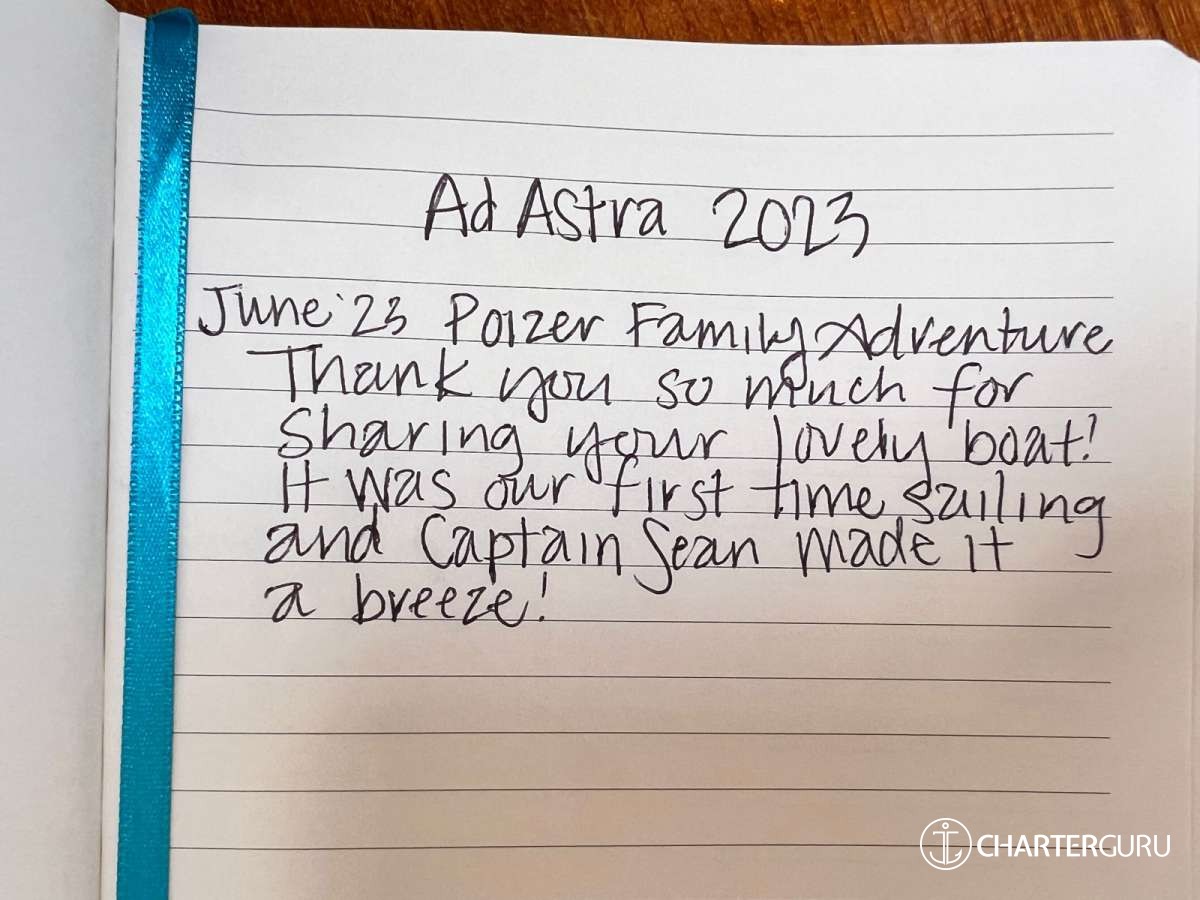 Ad Astra 2023
June '23 Poizer Family Adventure
Thank you so much for
sharing your lovely boat!
It was our first time sailing
and Captain Sean made it
a breeze!
CHARTERGURU